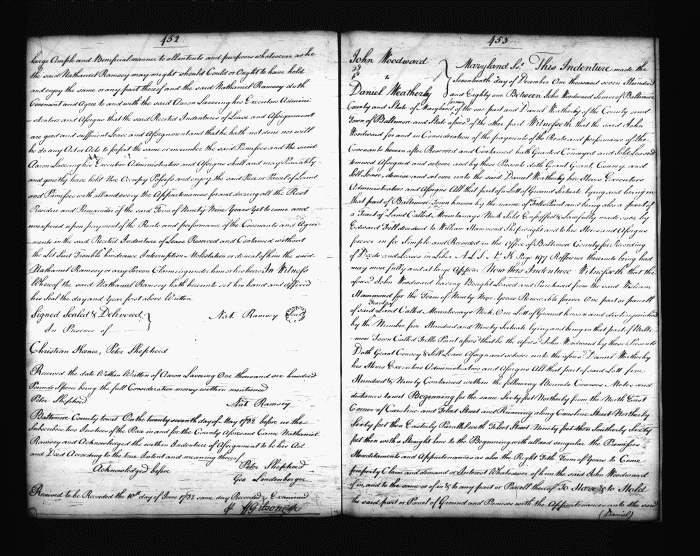 452
large Ample and Beneficial manner to all intents and purposes whatsoever as he
the said Nathaniel Ramsey may might should Could or Ought to have held
and enjoy the same or any part thereof and the said Nathaniel Ramsey doth
Covenant and Agree to and with the said Aaron Levering his Executors Adminis
trators and Assigns that the said Recited Indenture of Lease and Assignment
are good and sufficient Lease and Assignment and that he hath not done nor will
he do any Act or Acts to the same or incumber the said Premises and the said
Aaron Levering his Executors Administrators and Assigns shall and may Peaceably
and quietly have hold Use Occupy Possess and enjoy the said Piece or Parcel of Land
and Premises with all and every the Appurtenances for and during all the Rest
Residue and Remainder of the said Term of Ninety Nine Years Yet to come and
unexpired upon payment of the Rents and performance of the Covenants and Agree
ments in the said Recited Indenture of Lease Reserved and Contained without
the Let Suit Trouble hindrance Interruption Molestation or denial of him the said
Nathaniel Ramsey or any Person Claiming under him or her In Witness
Whereof the said Nathaniel Ramsey hath hereunto set his hand and affixed
his Seal the day and Year first above Written
Signed Sealed & Delivered
In Presence of
Nat Ramsey
Christian Keener, Peter Shepherd
Received the date Within Written of Aaron Levering One thousand one hundred
Pounds Specie being the full Consideration money within mentioned
Peter Shepherd
Nat Ramsey
Baltimore County to wit On the twenty seventh day of May 1782 before us the
Subscribers two Justices of the Peace in and for the County Aforesaid Came Nathaniel
Ramsey and Acknowledged the within Indenture of Assignment to be his Act
and Deed According to the true Intent and meaning thereof
Acknowledged before
Peter Shepherd
Geo Lindenberger
Received to be Recorded the 10th day of June 1782 same day Recorded & Examined
453
John Woodward
to
Daniel Weatherly
Maryland Ss. This Indenture made the
Seventeenth day of December One thousand seven Hundred
and Eighty one Between John Woodward Senior of Baltimore
County and State of Maryland of the one part and Daniel Weatherly of the County and
Town of Baltimore and State aforesd of the other part Witnesseth that the said John
Woodward for and in Consideration of the payments of the Rents and performance of the
Covenants herein after Reserved and Contained hath Granted Conveyed and Sold Leased
Assigned and set over and by these Presents doth Grant Convey and
Sell Lease demise and set over unto the said Daniel Weatherly his Heirs Executors
Administrators and Assigns All that part of a Lott of Ground Situate lying and being in
that part of Baltimore Town known by the name of Fells Point and being also a part of
a Tract of Land Called Mountenays Neck
Edward Fell demised to William Hammond Shipwright and to his Heirs and Assigns
forever in fee Simple and Recorded in the Office of Baltimore County for Recording
of Deeds and Leases in Liber A L No K Page 177 Refference thereunto being had
may more fully and at large Appear Now this Indenture Witnesseth that the
aforesd John Woodward having Bought Leased and Purchased from the said William
Hammond for the Term of Ninety Nine Years Renewable forever One part or parcell
of said Land Called Mountenays Neck One Lott of Ground known and distinguished
by the Number five Hundred and Ninety Situate lying and being in that part of Balti
more Town Called Fells Point aforesd that he the aforesd John Woodward by these Presents
Doth Grant Convey & Sell Lease Assign and set over unto the aforesd Daniel Weatherly
his Heirs Executors Administrators and Assigns All that part of said Lott five
Hundred & Ninety Contained within the following Bounds Courses Metes and
distances to wit Beginning for the same Sixty feet Northerly from the North East
Corner of Caroline and Street and Running along Caroline Street Northerly
Sixty feet then Easterly Parallel with Street Ninety feet then Southerly Sixty
feet then with a Straight line to the Beginning with all and singular the Premises
Hereditaments and Appurtenances as also the Right Title Term of Years to Come
property Claim and demand or Interest Whatsoever of him the said John Woodward
of in and to the same or of in & to any part or Parcell thereof To Have & to Hold
the said part or Parcel of Ground and Premises with the Appurtenances unto the said
(Daniel)